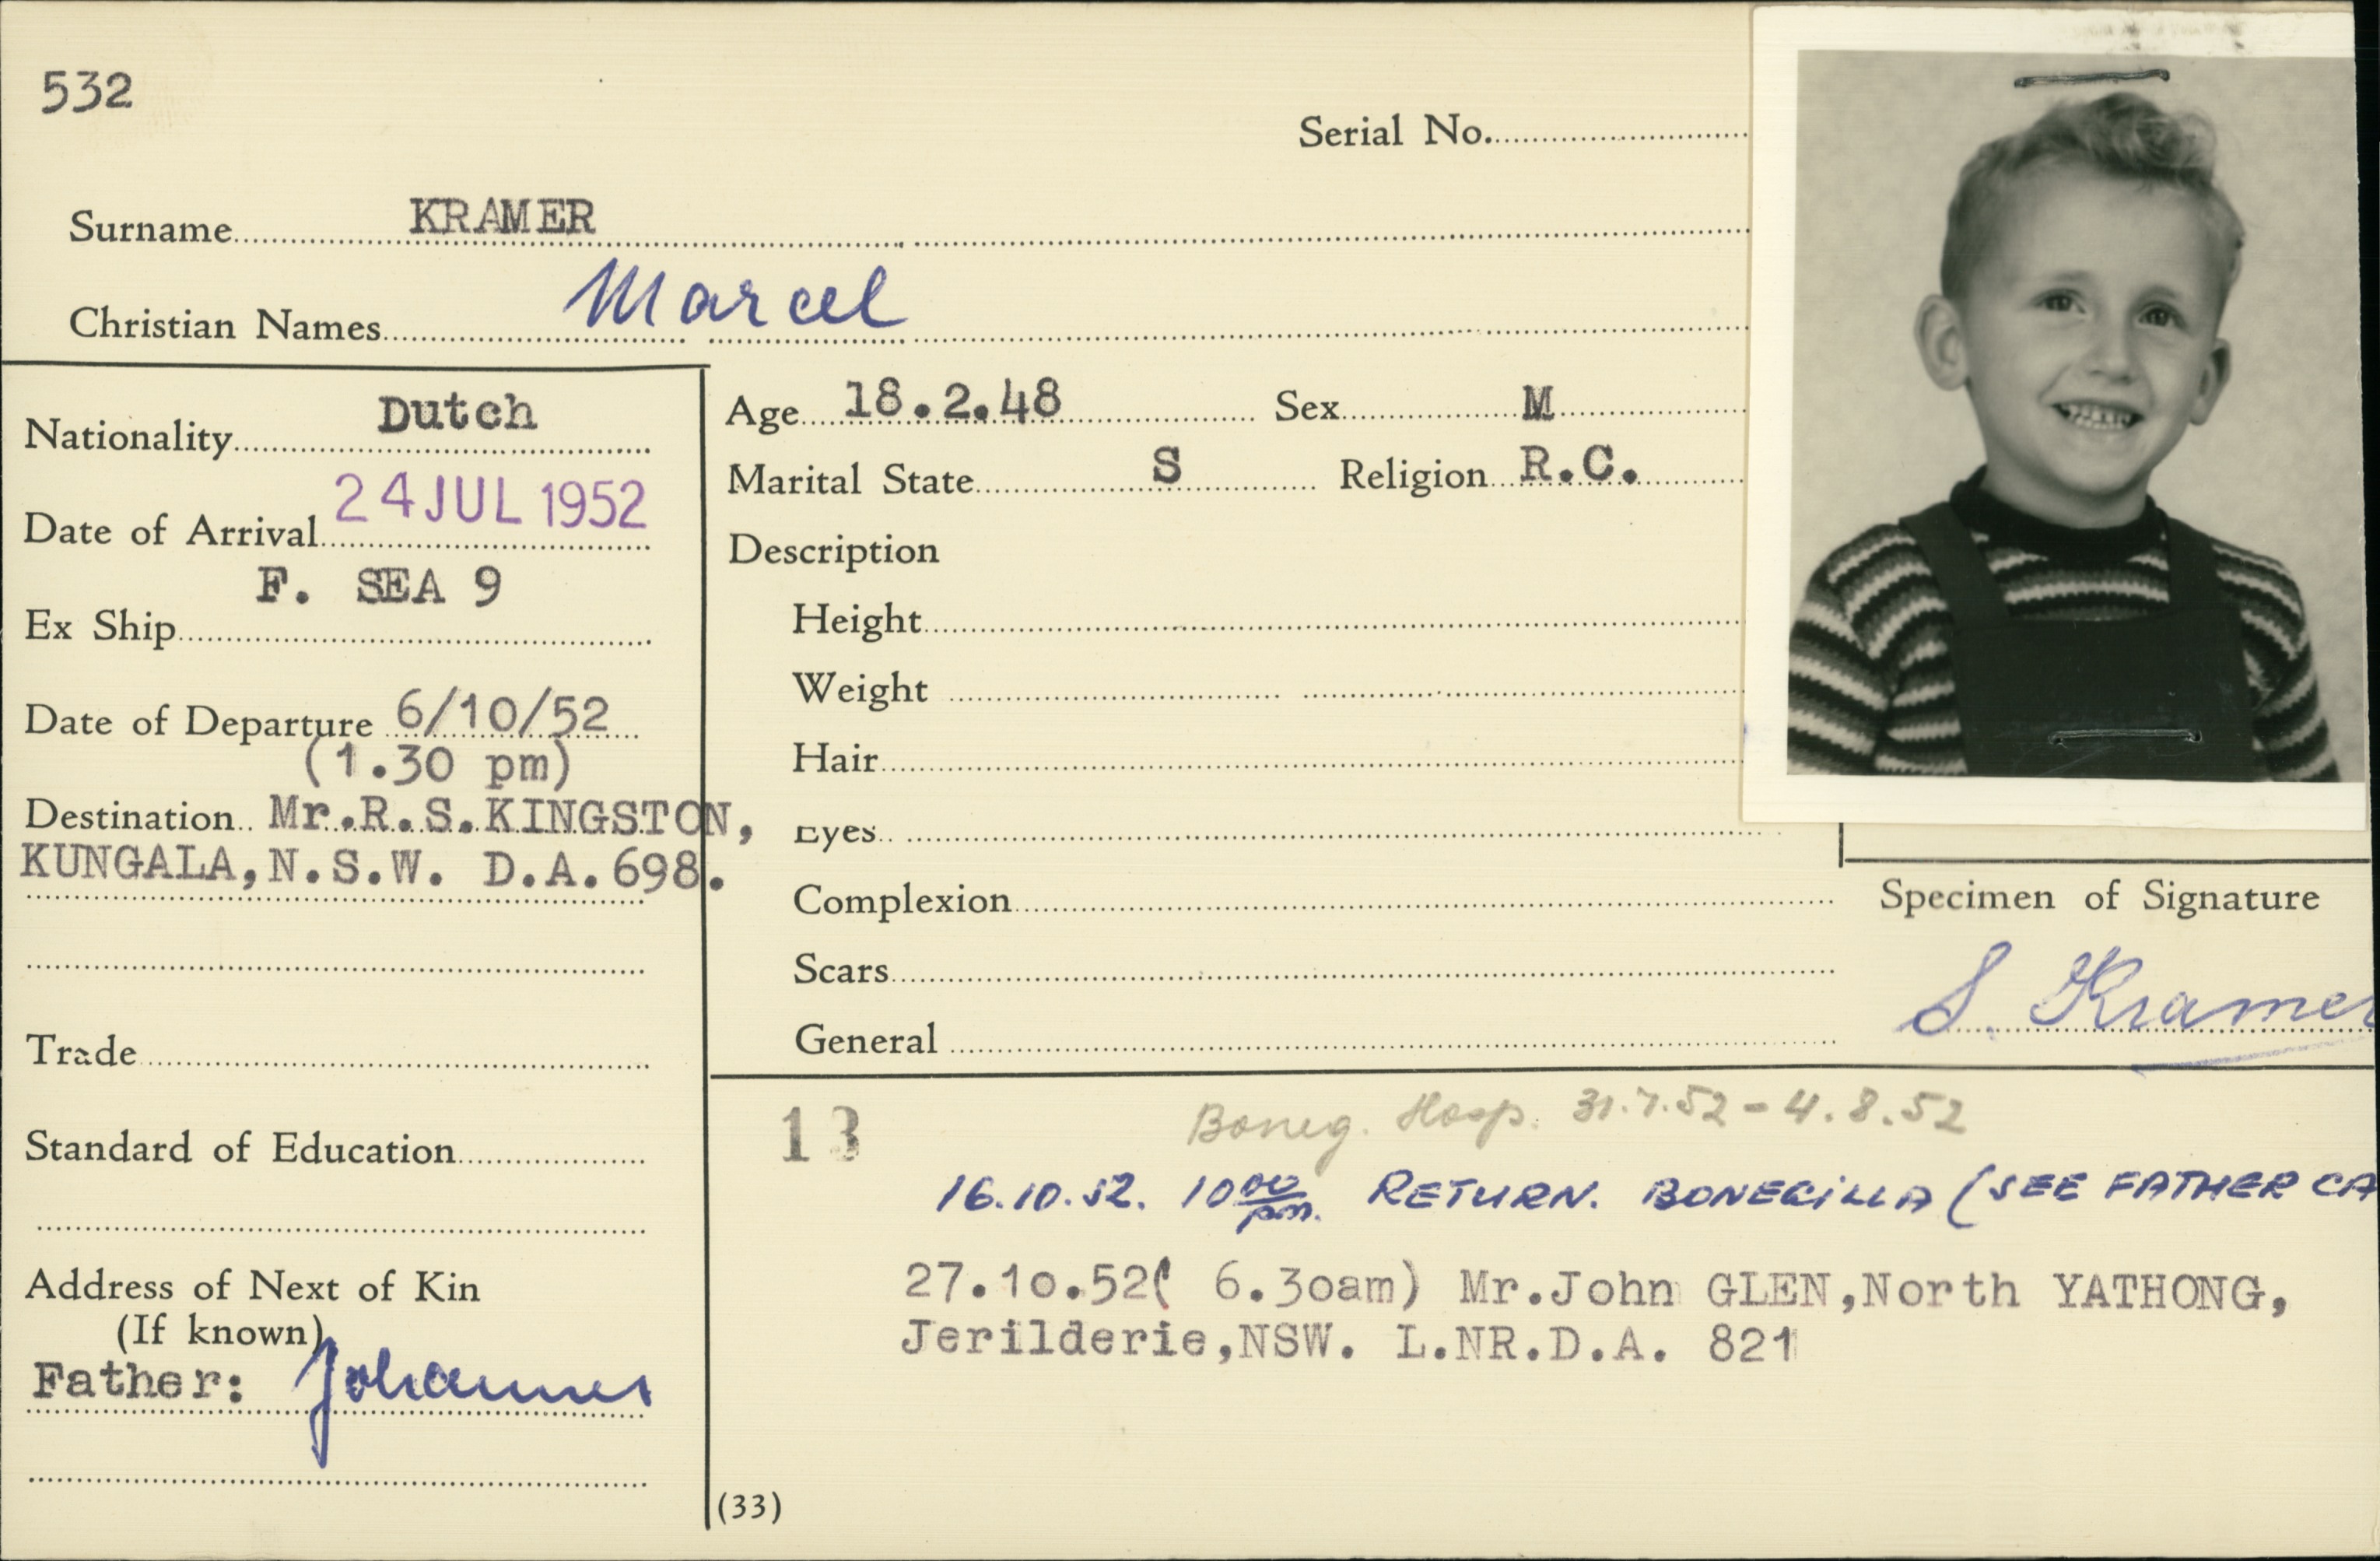 532
Serial No.
Surname KRAMER
Christian Names Marcel
Nationality Dutch
Date of Arrival 24 JUL 1952
Ex Ship F. SEA 9
Date of Departure 6/10/52
(1.30 pm)
Destination Mr.R.S.KINGSTON,
KUNGALA,N.S.W. D.A.698.
Trade
Standard of Education
Address of Next of Kin
(If known)
Father: Johannes
Age 18.2.48 Sex M
Marital State S Religion R.C.
Description
Height
Weight
Hair
Eyes
Complexion
Scars
General
Specimen of Signature
S. Kramer
13
Boneg. Hosp. 31.7.52 - 4.8.52
16.10.52. 10 00 pm. RETURN. BONEGILLA (SEE FATHER CA
27.10.52( 6.30am) Mr.John GLEN,North YATHONG,
Jerilderie,NSW. L.NR.D.A. 821
(33)